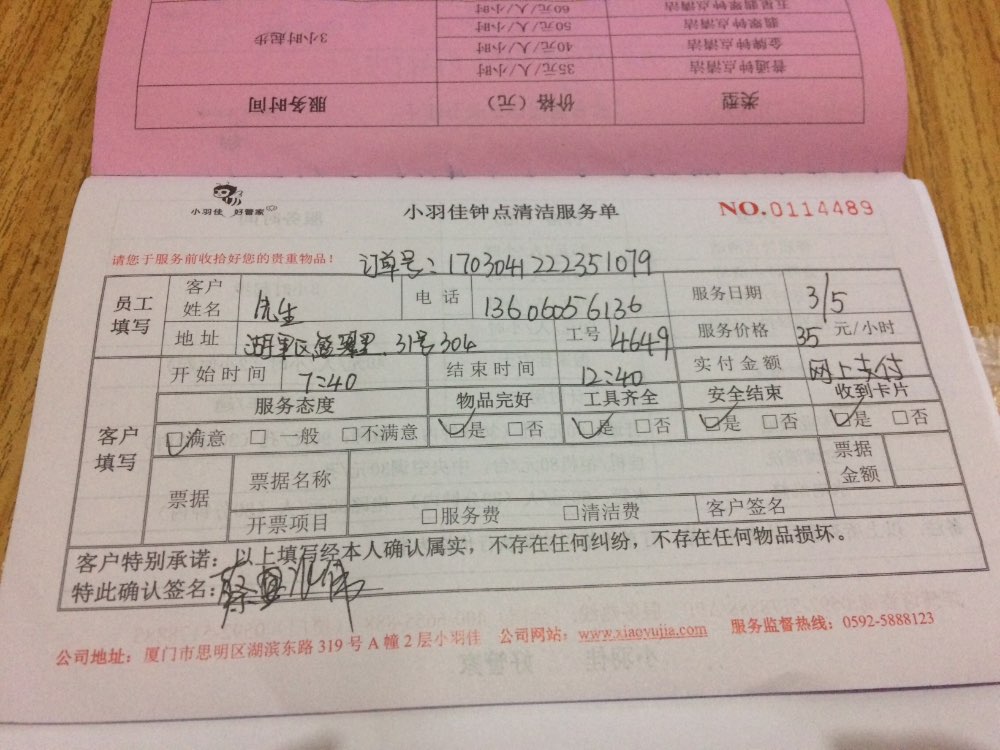 五星翡翠钟点清洁 60元/人/小时
翡翠钟点清洁 50元/人/小时
金牌钟点清洁 40元/人/小时 3小时起步
普通钟点清洁 35元/人/小时
类型 价格（元） 服务时间
小羽佳 好管家
小羽佳钟点清洁服务单 NO.0114489
请您于服务前收拾好您的贵重物品！ 订单号：1703041222351079
员工填写 客户姓名 先生 电话 13606056136 服务日期 3/5
地址 湖里区 31号304 工号 4649 服务价格 35 元/小时
开始时间 7:40 结束时间 12:40 实付金额 网上支付
客户填写 服务态度 物品完好 工具齐全 安全结束 收到卡片
☑满意 □一般 □不满意 ☑是 □否 ☑是 □否 ☑是 □否 ☑是 □否
票据 票据名称 票据金额
开票项目 □服务费 □清洁费 客户签名
客户特别承诺：以上填写经本人确认属实，不存在任何纠纷，不存在任何物品损坏。
特此确认签名：
公司地址：厦门市思明区湖滨东路319号A幢2层小羽佳 公司网站：www.xiaoyujia.com 服务监督热线：0592-5888123